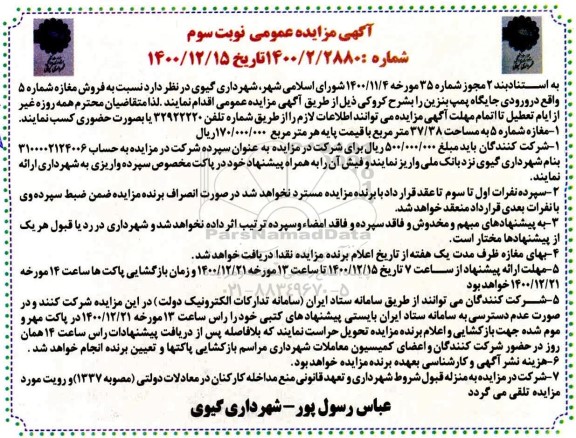 آگهی مزایده عمومی نوبت سوم
شماره :۱۴۰۰/۲/۲۸۸۰تاریخ ۱۴۰۰/۱۲/۱۵
به استنادبند ۲ مجوز شماره ۳۵ مورخه ۱۴۰۰/۱۱/۴ شورای اسلامی شهر، شهرداری گیوی در نظر دارد نسبت به فروش مغازه شماره ۵
واقع درورودی جایگاه پمپ بنزین را بشرح کروکی ذیل از طریق آگهی مزایده عمومی اقدام نمایند .لذا متقاضیان محترم همه روزه غیر
از ایام تعطیل تا اتمام مهلت آگهی مزایده می توانند اطلاعات لازم را از طریق شماره تلفن ۳۲۹۲۲۲۲۰ یا بصورت حضوری کسب نمایند.
۱-مغازه شماره ۵ به مساحت ۳۷/۳۸ متر مربع با قیمت پایه هر متر مربع ۱۷۰/۰۰۰/۰۰۰ریال
۱-شرکت کنندگان باید مبلغ ۵۰۰/۰۰۰/۰۰۰ ریال برای شرکت در مزایده به عنوان سپرده شرکت در مزایده به حساب ۳۱۰۰۰۰۲۱۲۴۰۰۶
بنام شهرداری گیوی نزد بانک ملی واریز نمایند و فیش آن را به همراه پیشنهاد خود در پاکت مخصوص سپرده واریزی به شهرداری ارائه
نمایند.
۲-سپرده نفرات اول تا سوم تا عقد قرارداد با برنده مزایده مسترد نخواهد شد در صورت انصراف برنده مزایده ضمن ضبط سپرده وی
با نفرات بعدی قرارداد منعقد خواهد شد.
۳-به پیشنهادهای مبهم و مخدوش و فاقد سپرده و فاقد امضاء وسپرده ترتیب اثر داده نخواهد شد و شهرداری در رد یا قبول هر یک
از پیشنهادها مختار است.
۴-بهای مغازه ظرف مدت یک هفته از تاریخ اعلام برنده مزایده نقدا دریافت خواهد شد.
۵-مهلت ارائه پیشنهاد از ساعت ۷ تاریخ ۱۴۰۰/۱۲/۱۵ تا ساعت ۱۳ مورخه ۱۴۰۰/۱۲/۲۱ و زمان بازگشایی پاکت ها ساعت ۱۴ مورخه
۱۴۰۰/۱۲/۲۱ خواهد بود
۵-شرکت کنندگان می توانند از طریق سامانه ستاد ایران (سامانه تدارکات الکترونیک دولت) در این مزایده شرکت کنند و در
صورت عدم دسترسی به سامانه ستاد ایران بایستی پیشنهادهای کتبی خود را راس ساعت ۱۳ مورخه ۱۴۰۰/۱۲/۲۱ در پاکت مهر و
موم شده جهت بازگشایی و اعلام برنده مزایده تحویل حراست نمایند که بلافاصله پس از دریافت پیشنهادات راس ساعت ۱۴ همان
روز در حضور شرکت کنندگان و اعضای کمیسیون معاملات شهرداری مراسم بازگشایی پاکتها و تعیین برنده انجام خواهد شد .
۶-هزینه نشر آگهی و کارشناسی بعهده برنده مزایده خواهد بود.
۷-شرکت در مزایده به منزله قبول شروط شهرداری و تعهد قانونی منع مداخله کارکنان در معادلات دولتی (مصوبه ۱۳۳۷) و رویت مورد
مزایده تلقی می گردد
عباس رسول پور-شهرداری گیوی
ParsNamadData
۰۲۱-۸۸۳۴۹۶۷۰-۵